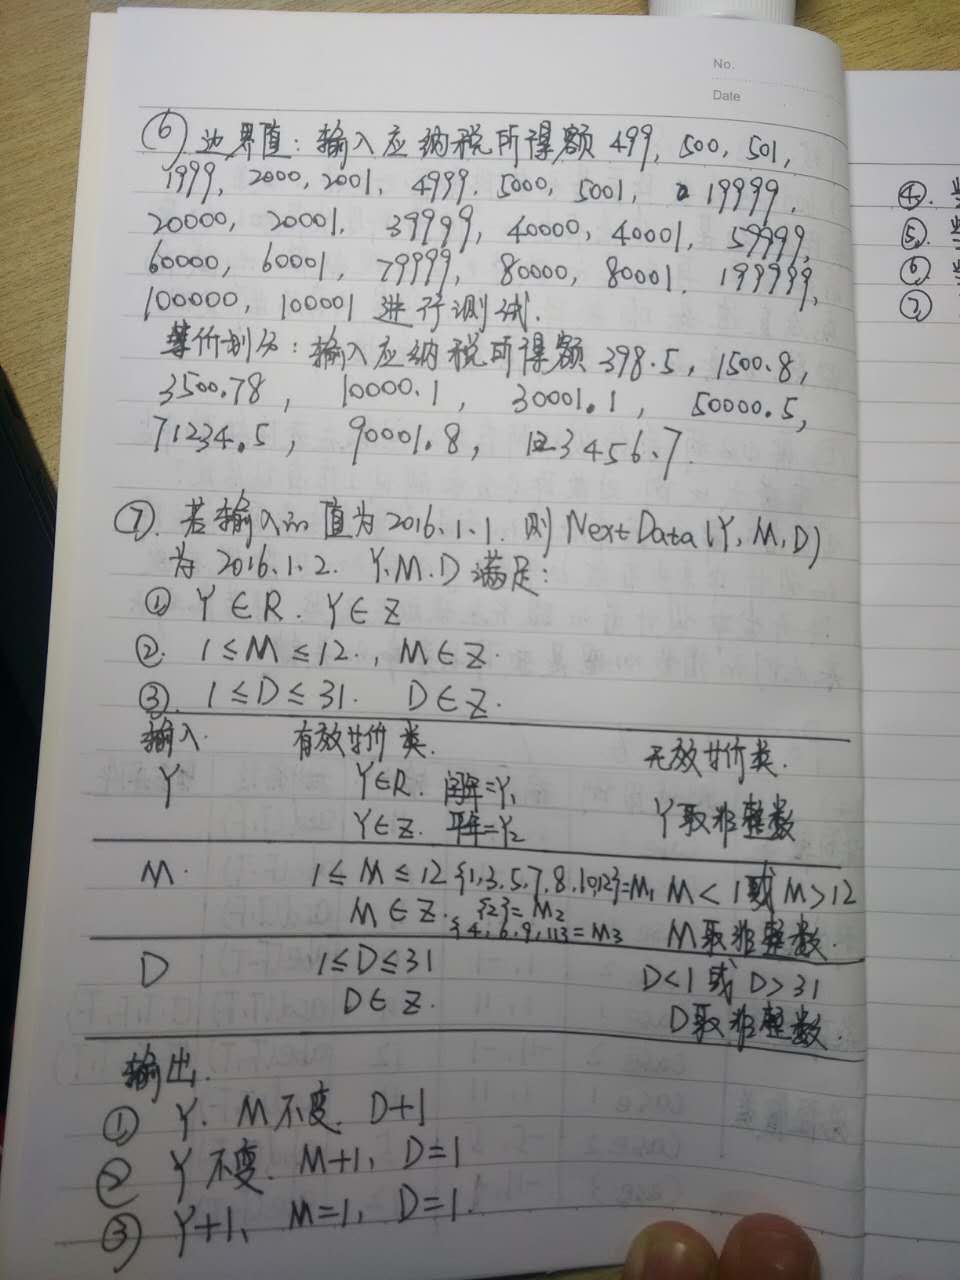 No.
Date
⑥ 边界值：输入应纳税所得额 499, 500, 501,
1999, 2000, 2001, 4999, 5000, 5001, 19999,
20000, 20001, 39999, 40000, 40001, 59999,
60000, 60001, 79999, 80000, 80001, 199999,
100000, 100001 进行测试.
等价划分：输入应纳税所得额 398.5, 1500.8,
3500.78, 10000.1, 30001.1, 50000.5,
71234.5, 90001.8, 123456.7.
⑦. 若输入的值为2016.1.1. 则 NextData(Y, M, D)
为 2016.1.2. Y.M.D 满足：
① Y∈R. Y∈Z
②. 1≤M≤12., M∈Z.
③. 1≤D≤31. D∈Z.
输入. 有效廿价类. 无效廿价类.
Y Y∈R. 闰年=Y1
Y∈Z. 平年=Y2 Y取非整数
M. 1≤M≤12 {1,3,5,7,8,10,12}=M1 M<1或M>12
M∈Z. {2}=M2
{4,6,9,11}=M3 M取非整数.
D 1≤D≤31 D<1或D>31
D∈Z. D取非整数.
输出.
① Y. M不变. D+1
② Y不变. M+1, D=1
③ Y+1, M=1, D=1.
④.
⑤.
⑥
⑦